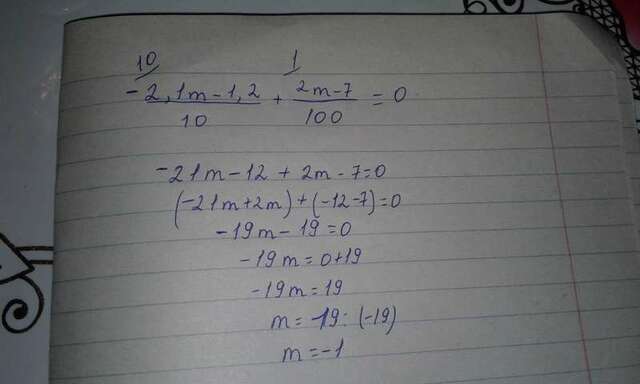 10/ 1/
(-2,1m-1,2)/10 + (2m-7)/100 = 0
-21m-12 + 2m-7=0
(-21m+2m)+(-12-7)=0
-19m-19=0
-19m=0+19
-19m=19
m=-19:(-19)
m=-1